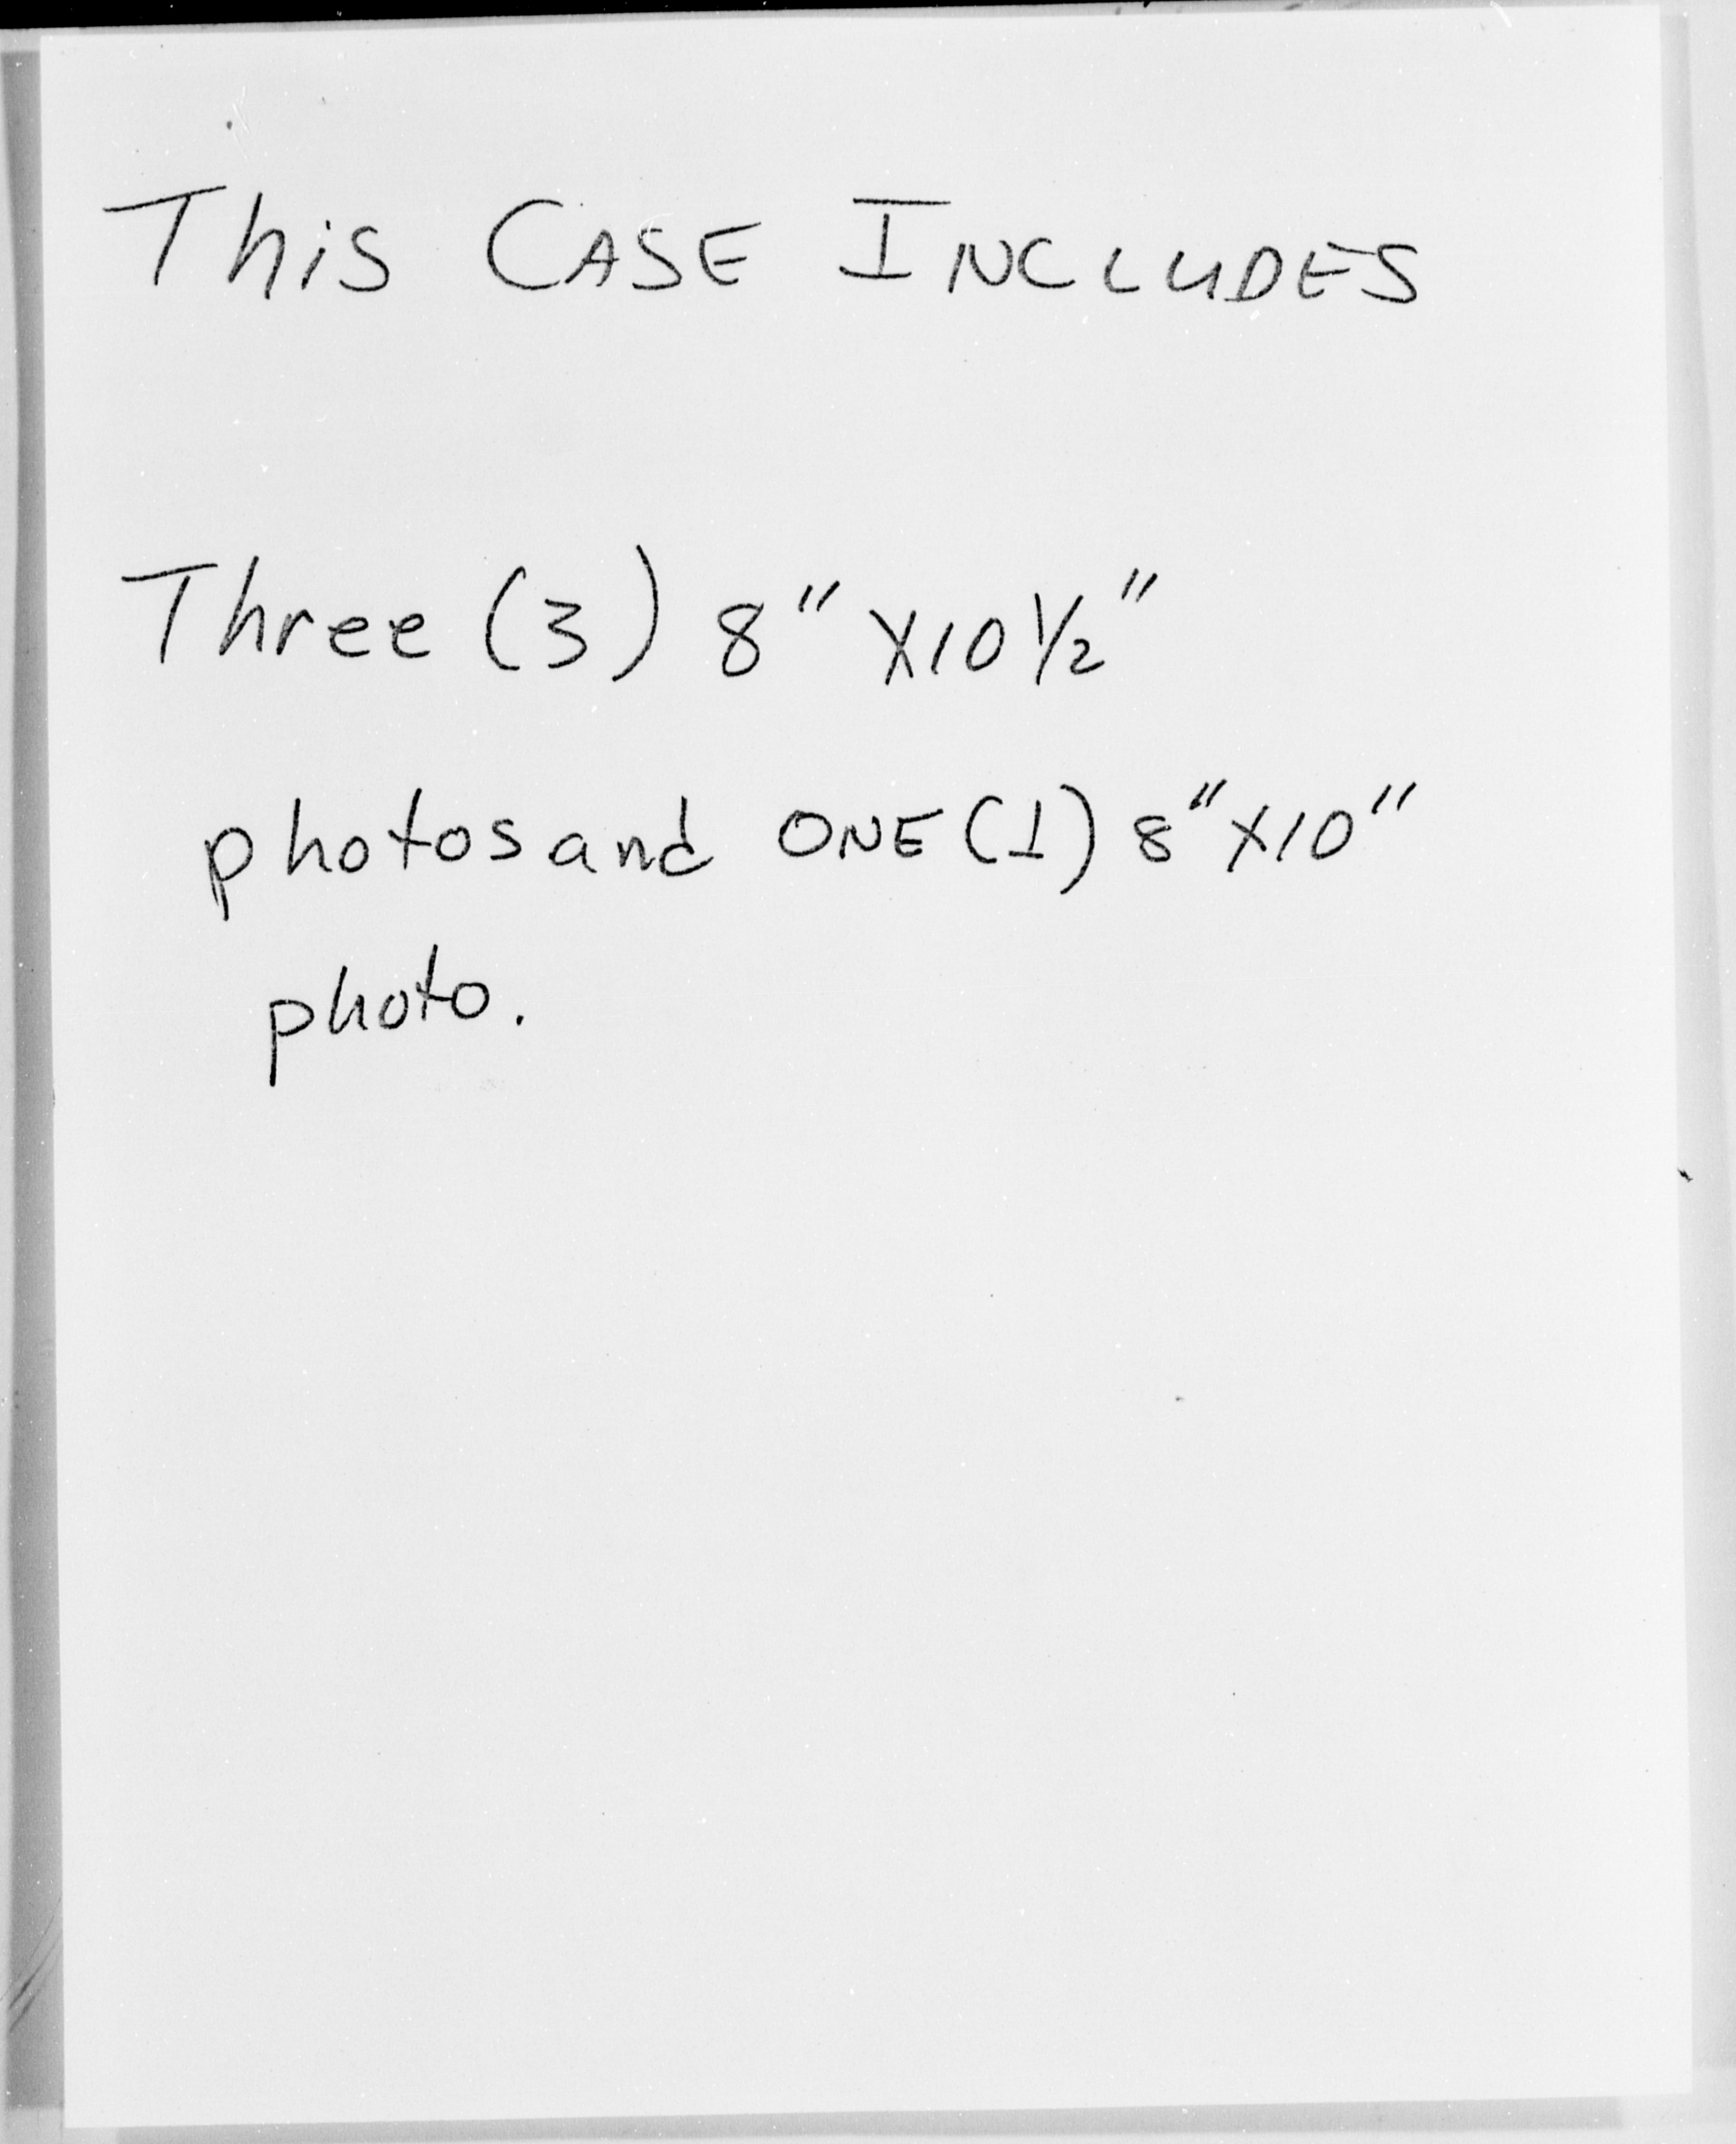 This CASE INCLUDES
Three (3) 8" X10 1/2"
photos and ONE (1) 8" X10"
photo.